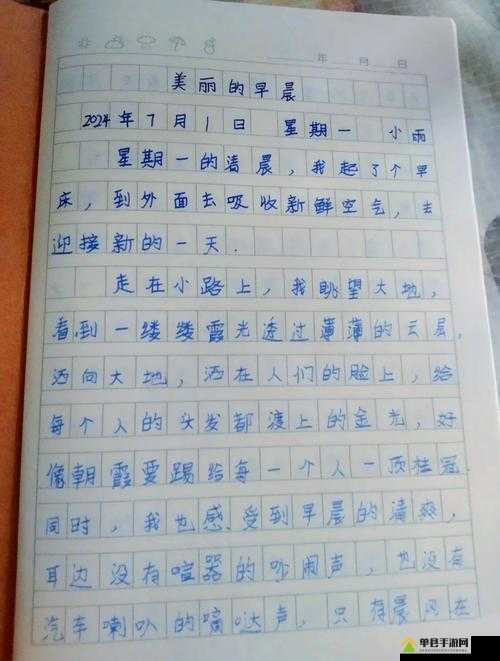 年 月 日
美丽的早晨
2024年7月1日 星期一 小雨
星期一的清晨,我起了个早
床,到外面去吸收新鲜空气,去
迎接新的一天.
走在小路上,我眺望大地,
看到一缕缕霞光透过薄薄的云层,
洒向大地,洒在人们的脸上,给
每个人的头发都渡上的金光,好
像朝霞要踢给每一个人一顶桂冠.
同时,我也感受到早晨的清爽,
耳边没有喧器的吵闹声,也没有
汽车喇叭的嘀哒声,只有晨风在
单县手游网